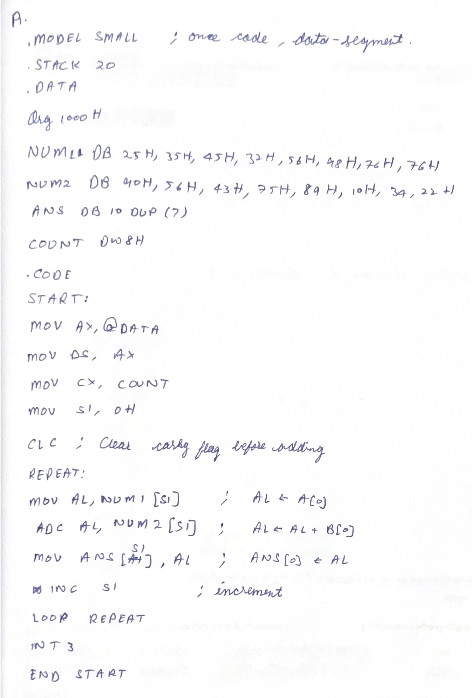 A.
.MODEL SMALL ; once code, data-segment.
.STACK 20
.DATA
Org 1000H
NUM1 DB 25H, 35H, 45H, 32H, 56H, 48H, 76H, 76H
NUM2 DB 40H, 56H, 43H, 75H, 89H, 10H, 34, 22H
ANS DB 10 DUP (?)
COUNT DW 8H
.CODE
START:
MOV AX, @DATA
MOV DS, AX
MOV CX, COUNT
MOV SI, 0H
CLC ; Clear carry flag before adding
REPEAT:
MOV AL, NUM1 [SI] ; AL ← A[0]
ADC AL, NUM2 [SI] ; AL ← AL + B[0]
MOV ANS [SI], AL ; ANS[0] ← AL
INC SI ; increment
LOOP REPEAT
INT 3
END START